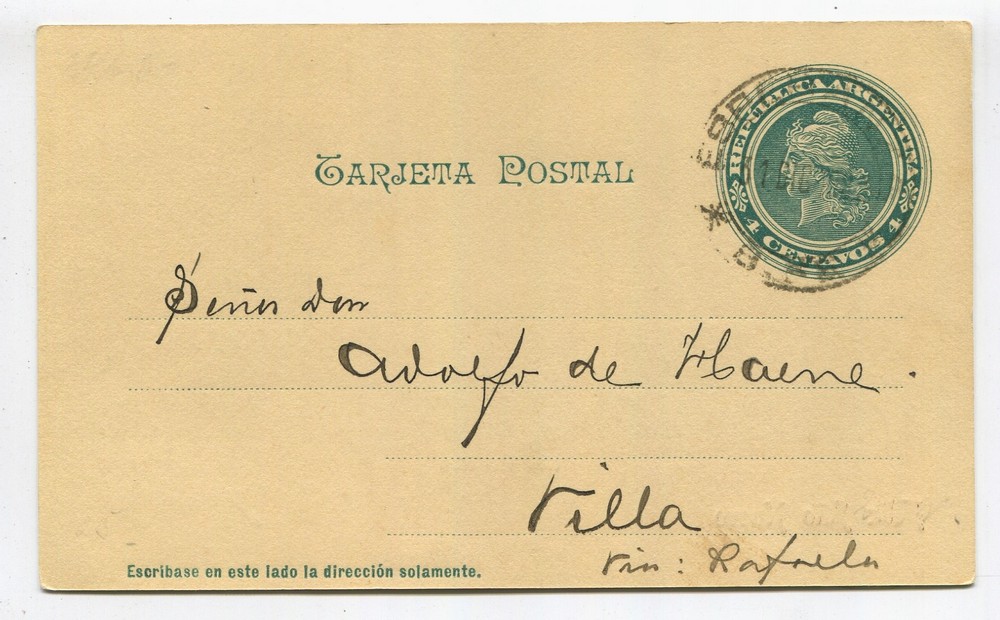 TARJETA POSTAL
REPÚBLICA ARGENTINA
4 CENTAVOS 4
Señor Don
Adolfo de Haene.
Villa
Via: Rafaela
Escríbase en este lado la dirección solamente.